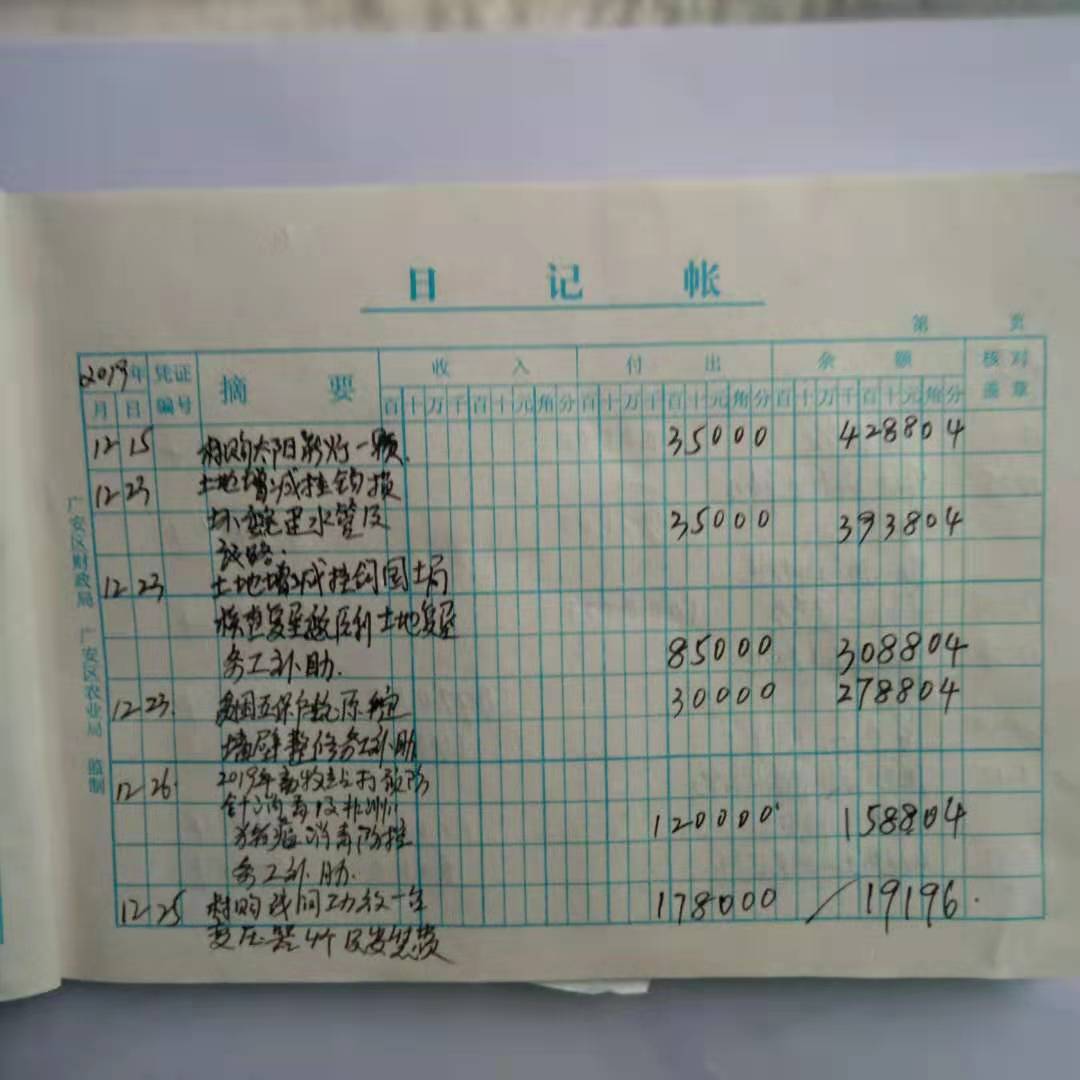 日 记 帐
第 页
2019年 凭证编号 摘要 收入 付出 余额 核对盖章
月 日 百十万千百十元角分 百十万千百十元角分 百十万千百十元角分
12 15 村购太阳能灯一颗. 35000 428804
12 23 土地增减挂钩损
坏 水管及
35000 393804
路.
12 23 土地增减挂钩国土局
土地复垦
务工补助. 85000 308804
12 23. 五保户 30000 278804
墙壁整修务工补助
12 26. 2019年畜牧 打预防
针消毒及非洲
猪瘟消毒防控 120000 158804
务工补助.
12 25 村购 178000 / 19196.
变压器4个
广安区财政局 广安区农业局 监制